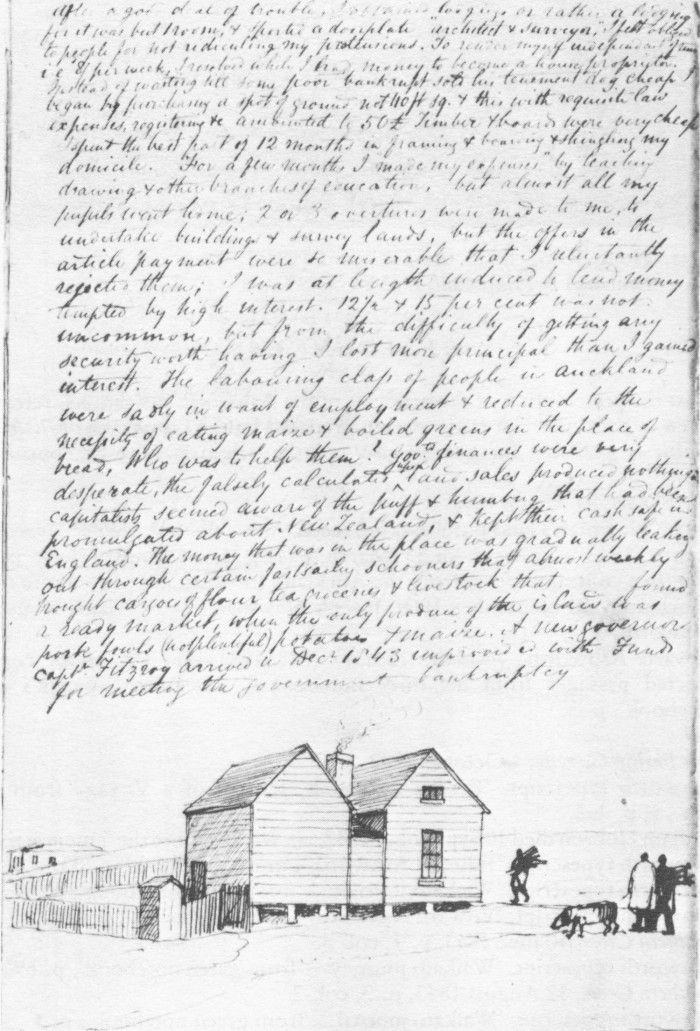 After a good deal of trouble, I obtained lodgings or rather a lodging
for it was but 1 room, & sported a doorplate "architect & surveyor," I felt obliged
to people for not ridiculing my pretensions. To render myself independent of
i.e. per week, I resolved while I had money to become a house proprietor.
Instead of waiting till some poor bankrupt sold his tenement dog cheap I
began by purchasing a spot of ground not 40 ft sq. & this with requisite law
expenses, registering &c amounted to 50£ Timber & boards were very cheap
I spent the best part of 12 months in framing & boarding & shingling my
domicile. For a few months I made my expenses by teaching
drawing & other branches of education, but almost all my
pupils went home; 2 or 3 overtures were made to me, to
undertake buildings & survey lands, but the offers in the
article payment were so miserable that I reluctantly
rejected them; I was at length induced to lend money
tempted by high interest. 12½ & 15 per cent was not
uncommon, but from the difficulty of getting any
security worth having I lost more principal than I gained
interest. The labouring class of people in Auckland
were sadly in want of employment & reduced to the
necessity of eating maize & boiled greens in the place of
bread, Who was to help them? Gov.t finances were very
desperate, the falsely calculated land sales produced nothing,
capitalists seemed aware of the puff & humbug that had been
promulgated about New Zealand, & kept their cash safe in
England. The money that was in the place was gradually leaking
out through certain fast sailing schooners that almost weekly
brought cargoes of flour tea groceries & livestock that found
a ready market, when the only produce of the island was
pork fowls (not plentiful) potatoes & maize. A new governor
Capt. Fitzroy arrived in Decr 1843 unprovided with Funds
for meeting the government bankruptcy